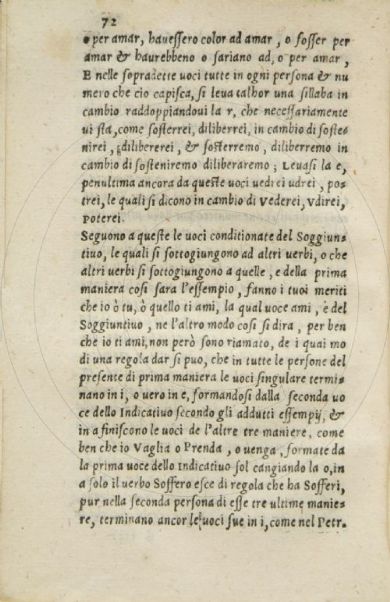 72
o per amar, hauessero color ad amar, o fosser per
amar & haurebbeno o sariano ad, o per amar,
E nelle sopradette uoci tutte in ogni persona & nu
mero che cio capisca, si leua talhor una sillaba in
cambio raddoppiandoui la r, che necessariamente
ui sta, come sosterrei, diliberrei, in cambio di soste-
nirei, diliberarei, & sosterremo, diliberremo in
cambio di sosteniremo diliberaremo; Leuasi la e,
penultima ancora da queste uoci uedrei udrei, po-
trei, le quali si dicono in cambio di Vederei, Vdirei,
Poterei.
Seguono a queste le uoci conditionate del Soggiun-
tiuo, le quali si sottogiungono ad altri uerbi, o che
altri uerbi si sottogiungono a quelle, e della prima
maniera cosi sara l'essempio, fanno i tuoi meriti
che io ò tu, ò quello ti ami, la qual uoce ami, è del
Soggiuntiuo, ne l'altro modo cosi si dira, per ben
che io ti ami, non però sono riamato, de i quai mo
di una regola dar si puo, che in tutte le persone del
presente di prima maniera le uoci singulare termi-
nano in i, o uero in e, formandosi dalla seconda uo
ce dello Indicatiuo secondo gli addutti essempij, &
in a finiscono le uoci de l'altre tre maniere, come
ben che io Vaglia o Prenda, o uenga, formate da
la prima uoce dello Indicatiuo sol cangiando la o, in
a solo il uerbo Soffero esce di regola che ha Sofferi,
pur nella seconda persona di esse tre ultime manie-
re, terminano ancor le uoci sue in i, come nel Petr.